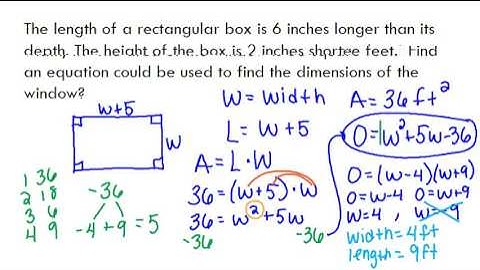 The length of a rectangular box is 6 inches longer than its
depth. The height of the box is 2 inches shortee feet. Find
an equation could be used to find the dimensions of the
window?
w+5
w
W = width
L = W + 5
A = L · W
36 = (w+5) · w
36 = w² + 5w
-36 -36
A = 36 ft²
0 = 1w² + 5w - 36
0 = (w-4)(w+9)
0 = w-4 0 = w+9
w = 4 , w = -9
width = 4 ft
length = 9 ft
1 36
2 18
3 6
4 9
-36
-4 + 9 = 5